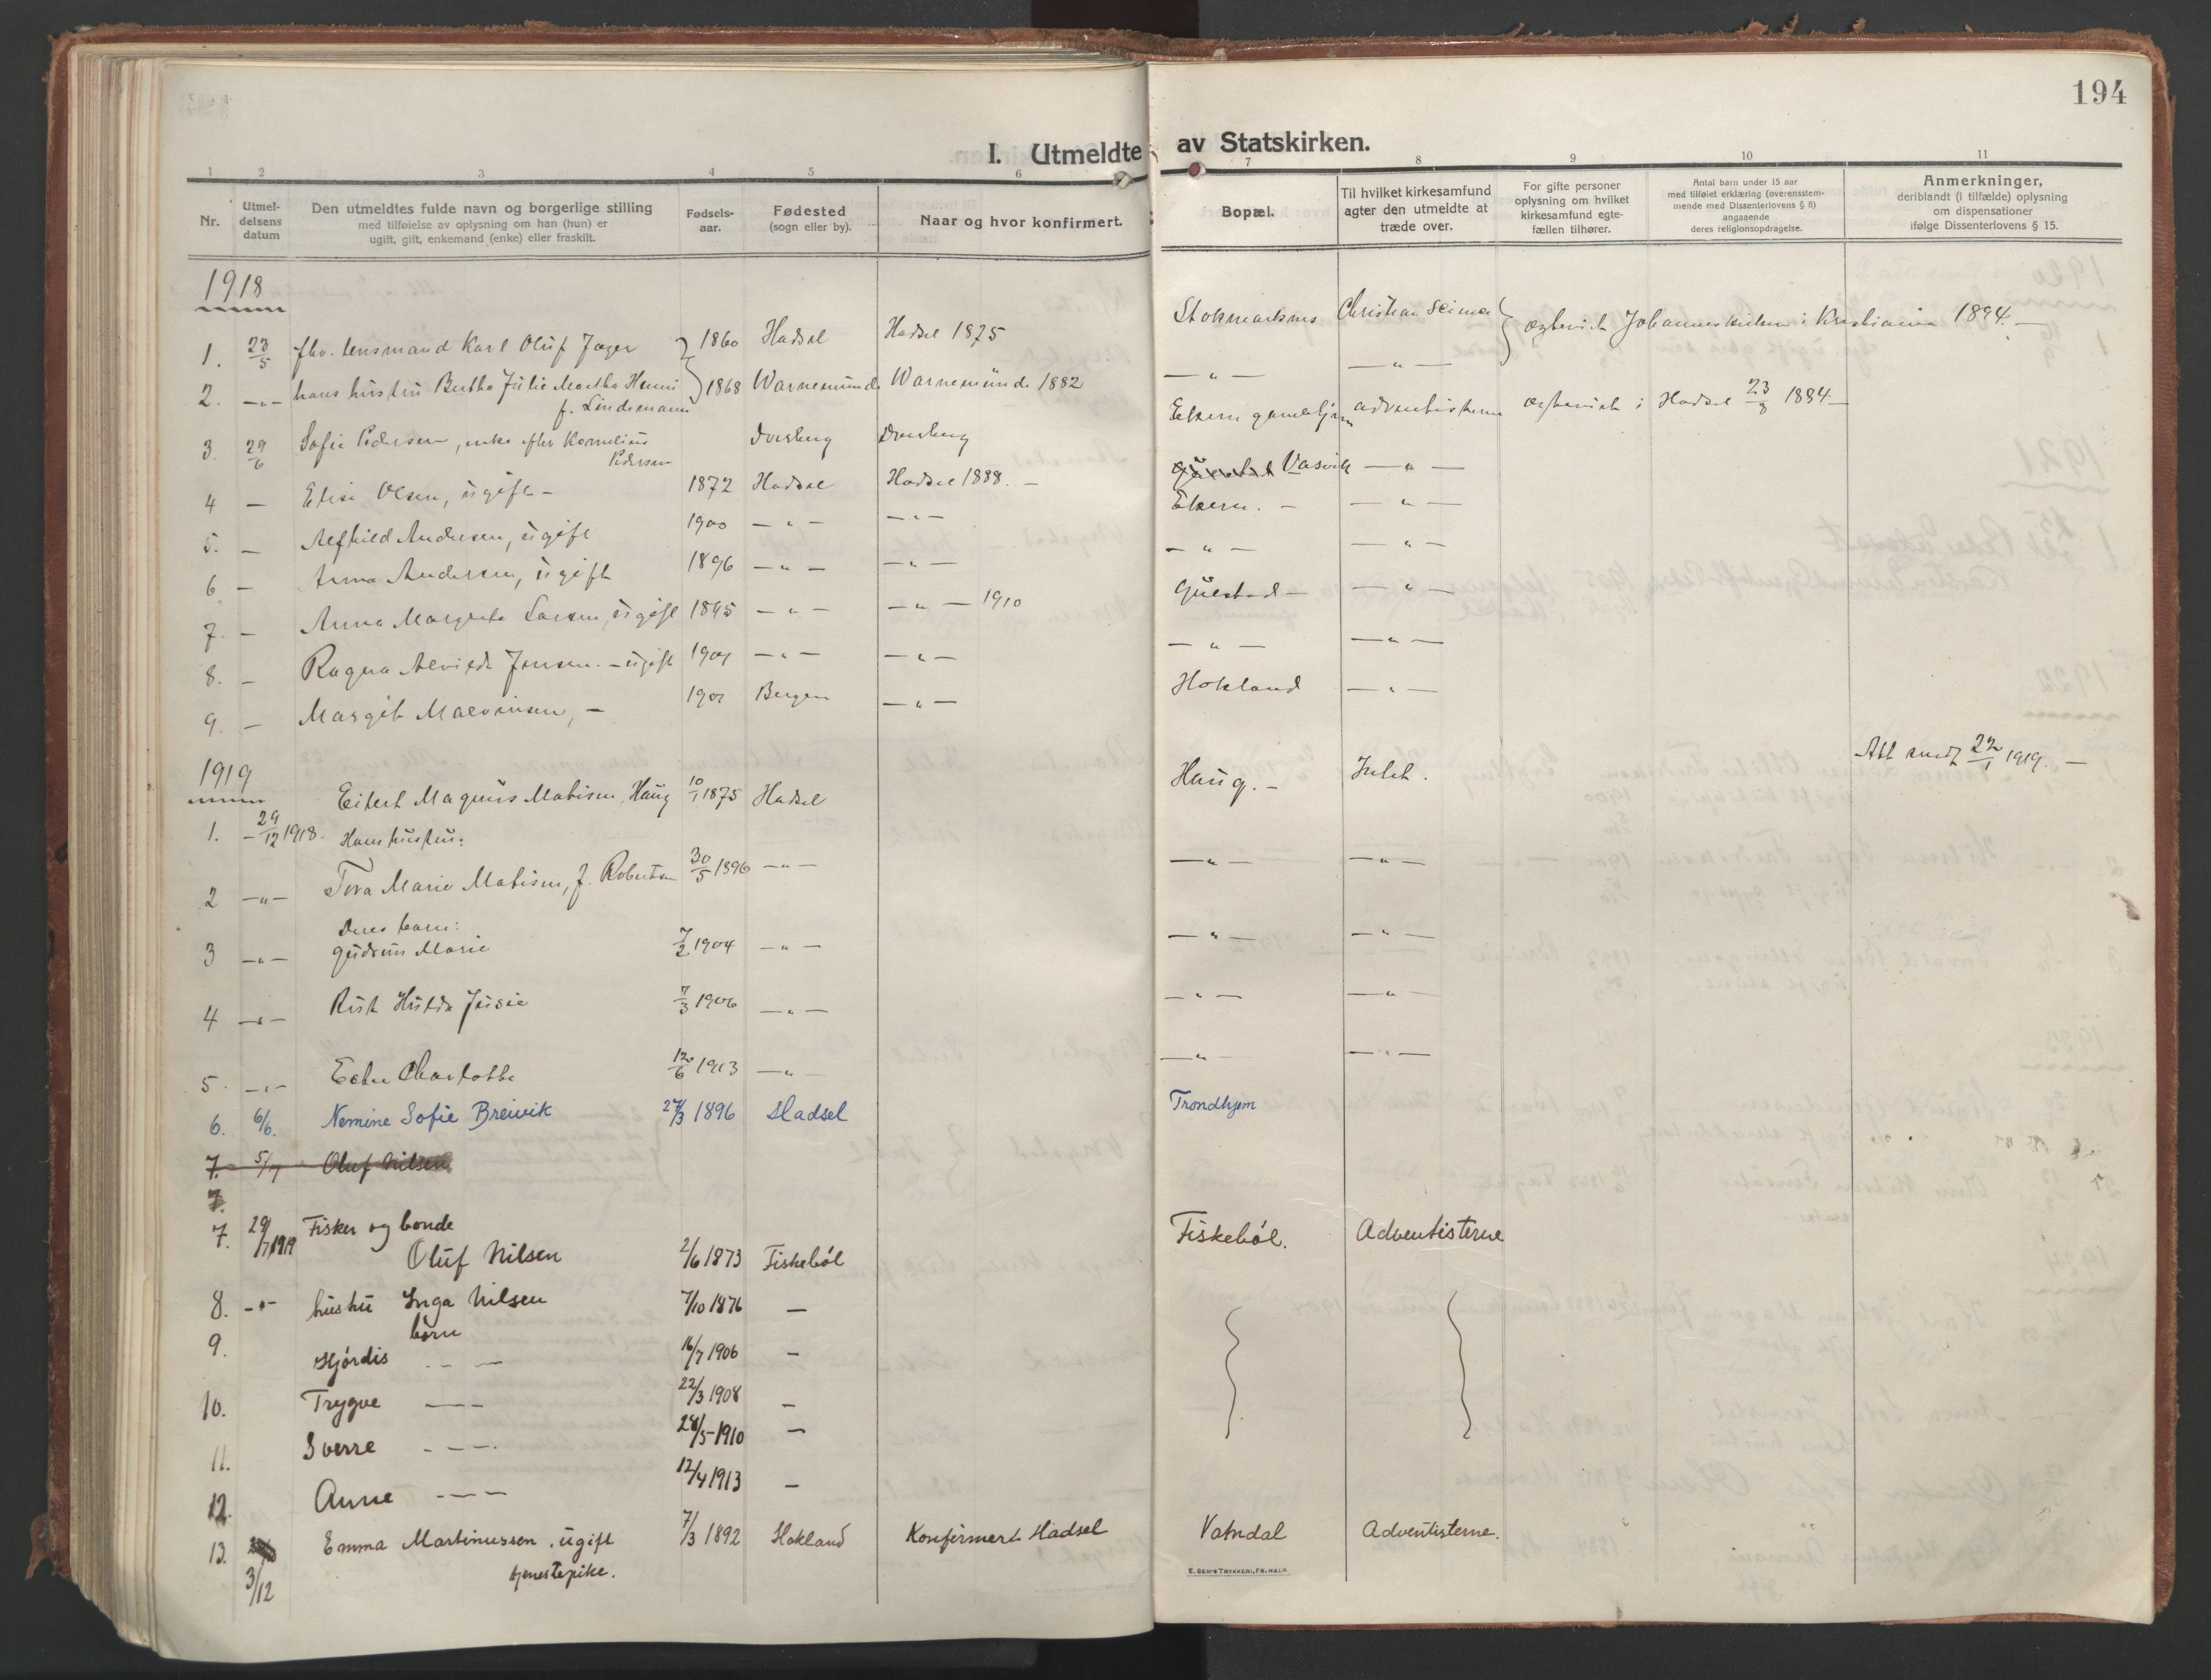 194
I. Utmeldte av Statskirken.
1 2 3 4 5 6 7 8 9 10 11
Nr.
Utmel-
delsens
datum
Den utmeldtes fulde navn og borgerlige stilling
med tilføielse av oplysning om han (hun) er
ugift, gift, enkemand (enke) eller fraskilt.
Fødsels-
aar.
Fødested
(sogn eller by).
Naar og hvor konfirmert.
Bopæl.
Til hvilket kirkesamfund
agter den utmeldte at
træde over.
For gifte personer
oplysning om hvilket
kirkesamfund egte-
fællen tilhører.
Antal barn under 15 aar
med tilføiet erklæring (overensstem-
mende med Dissenterlovens § 8)
angaaende
deres religionsopdragelse.
Anmerkninger,
deriblandt (i tilfælde) oplysning
om dispensationer
ifølge Dissenterlovens § 15.
1918
1. 23/5 fhv. lensmand Karl Oluf Jæger 1860 Hadsel Hadsel 1875 Stokmarknes Christian Johanneskirken i Kristiania 1894. —
2. —"— hans hustru Bertha Julie Martha Henni 1868 Warnemünde Warnemünde 1882 —"— —"—
f. Lindemann
3. 29/6 Sofie Pedersen, enke efter Kornelius Dverberg Dverberg adventisterne i Hadsel 23/8 1884 —
Pedersen
4 — Elise Olsen, ugift — 1872 Hadsel Hadsel 1888. — Vasvik —"—
5. — Alfhild Andersen, ugift 1900 —"— —"— —"—
6 — Anna Andersen, ugift 1896 —"— —"— —"— —"—
7. — Anna Margrete Larsen, ugift 1895 —"— —"— 1910 Guelstad — —"—
8. — Ragna Alvilde Jensen. — ugift 1901 —"— —"— —"— —"—
9. — Margit — 1901 Bergen —"— Hokland —"—
1919
1. — 29/12 1918. Eilert Magnus Matisen, Haug 10/1 1875 Hadsel Haug. — Intet. Att. 22/1 1919. —
Hans hustru:
2 —"— Tora Marie Matisen, f. 30/5 1896 —"— —"— —"—
Deres barn:
3 —"— Gudrun Marie 7/2 1904 —"— —"— —"—
4 —"— Rut Hulda 7/3 1906 —"— —"— —"—
5. —"— Charlotte 12/6 1913 —"— —"— —"—
6. 6/6. Nemine Sofie Breivik 27/3 1896 Hadsel Trondhjem
7. 5/7 Oluf Nilsen
7.
7. 29/7 1919 Fisker og bonde Fiskebøl. Adventisterne
Oluf Nilsen 2/6 1873 Fiskebøl
8. —"— hustru Inga Nilsen 7/10 1876 —
børn
9. Hjørdis — — 16/7 1906 —
10. Trygve — — 22/3 1908 —
11. Sverre — — 28/5 1910 —
12. Anne — — 12/4 1913 —
13. 3/12 Emma Martinussen, ugift 7/3 1892 Hokland Konfirmert Hadsel Vatndal Adventisterne.
tjenestepike.
E. SEM'S TRYKKERI, FR.HALD